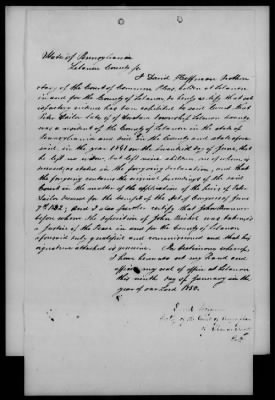 State of Pennsylvania
Lebanon County ss.
I David Hoffman Prothon
otary of the Court of Common Pleas, holden at Lebanon
in and for the County of Lebanon, do hereby certify that sat
isfactory evidence has been exhibited to said Court that
Peter Sailor late of Township Lebanon County
was a resident of the County of Lebanon in the state of
Pennsylvania and died in the County and state afore
said, in the year 1841 on the twentieth day of June, that
he left no widow, but left nine children one of whom is
as stated in the foregoing declaration, and that
the foregoing contains the original proceedings of the said
Court in the matter of the application of the heirs of Peter
Sailor deceased for the benefit of the Act of Congress of June
7th 1832; And I also further certify that John
before whom the deposition of John Bickel was taken is
a Justice of the Peace in and for the County of Lebanon
aforesaid duly qualified and commissioned and that his
signature attached is genuine. In testimony whereof
I have hereunto set my hand and
affix my seal of office at Lebanon
this ninth day of January in the
year of our Lord 1852.
of the Court of